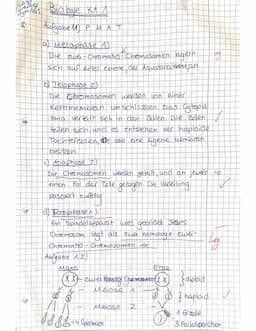 Biologie KA 1
Aufgabe 1) P M A T
a) Metaphase 1)
Die zwei-Chromatid-Chromosomen lagern
sich auf einer Ebene, der Äquatorialebene, an
b) Telophase 2)
Die Chromosomen werden von einer
Kernmembran umschlossen. Das Cytopla
sma verteilt sich in den Zellen. Die Zellen
teilen sich und es entstehen vier haploide
Tochterzellen, die alle eine eigene Membran
besitzen
c) Anaphase 2)
Die Chromosomen werden geteilt, und an jeweils
einen Pol der Zelle gezogen. Die Verteilung
passiert zufällig
d) Prophase 1)
Ein Spindelapparat wird gebildet. Jedes
Chromosom liegt als zwei homologe zwei-
Chromatid-Chromosomen vor.
Aufgabe 1.2)
Mann Frau
zwei Chromosomen } diploid
Meiose 1 } haploid
Meiose 2
4 Spermien 1 Eizelle
3 Polkörperchen